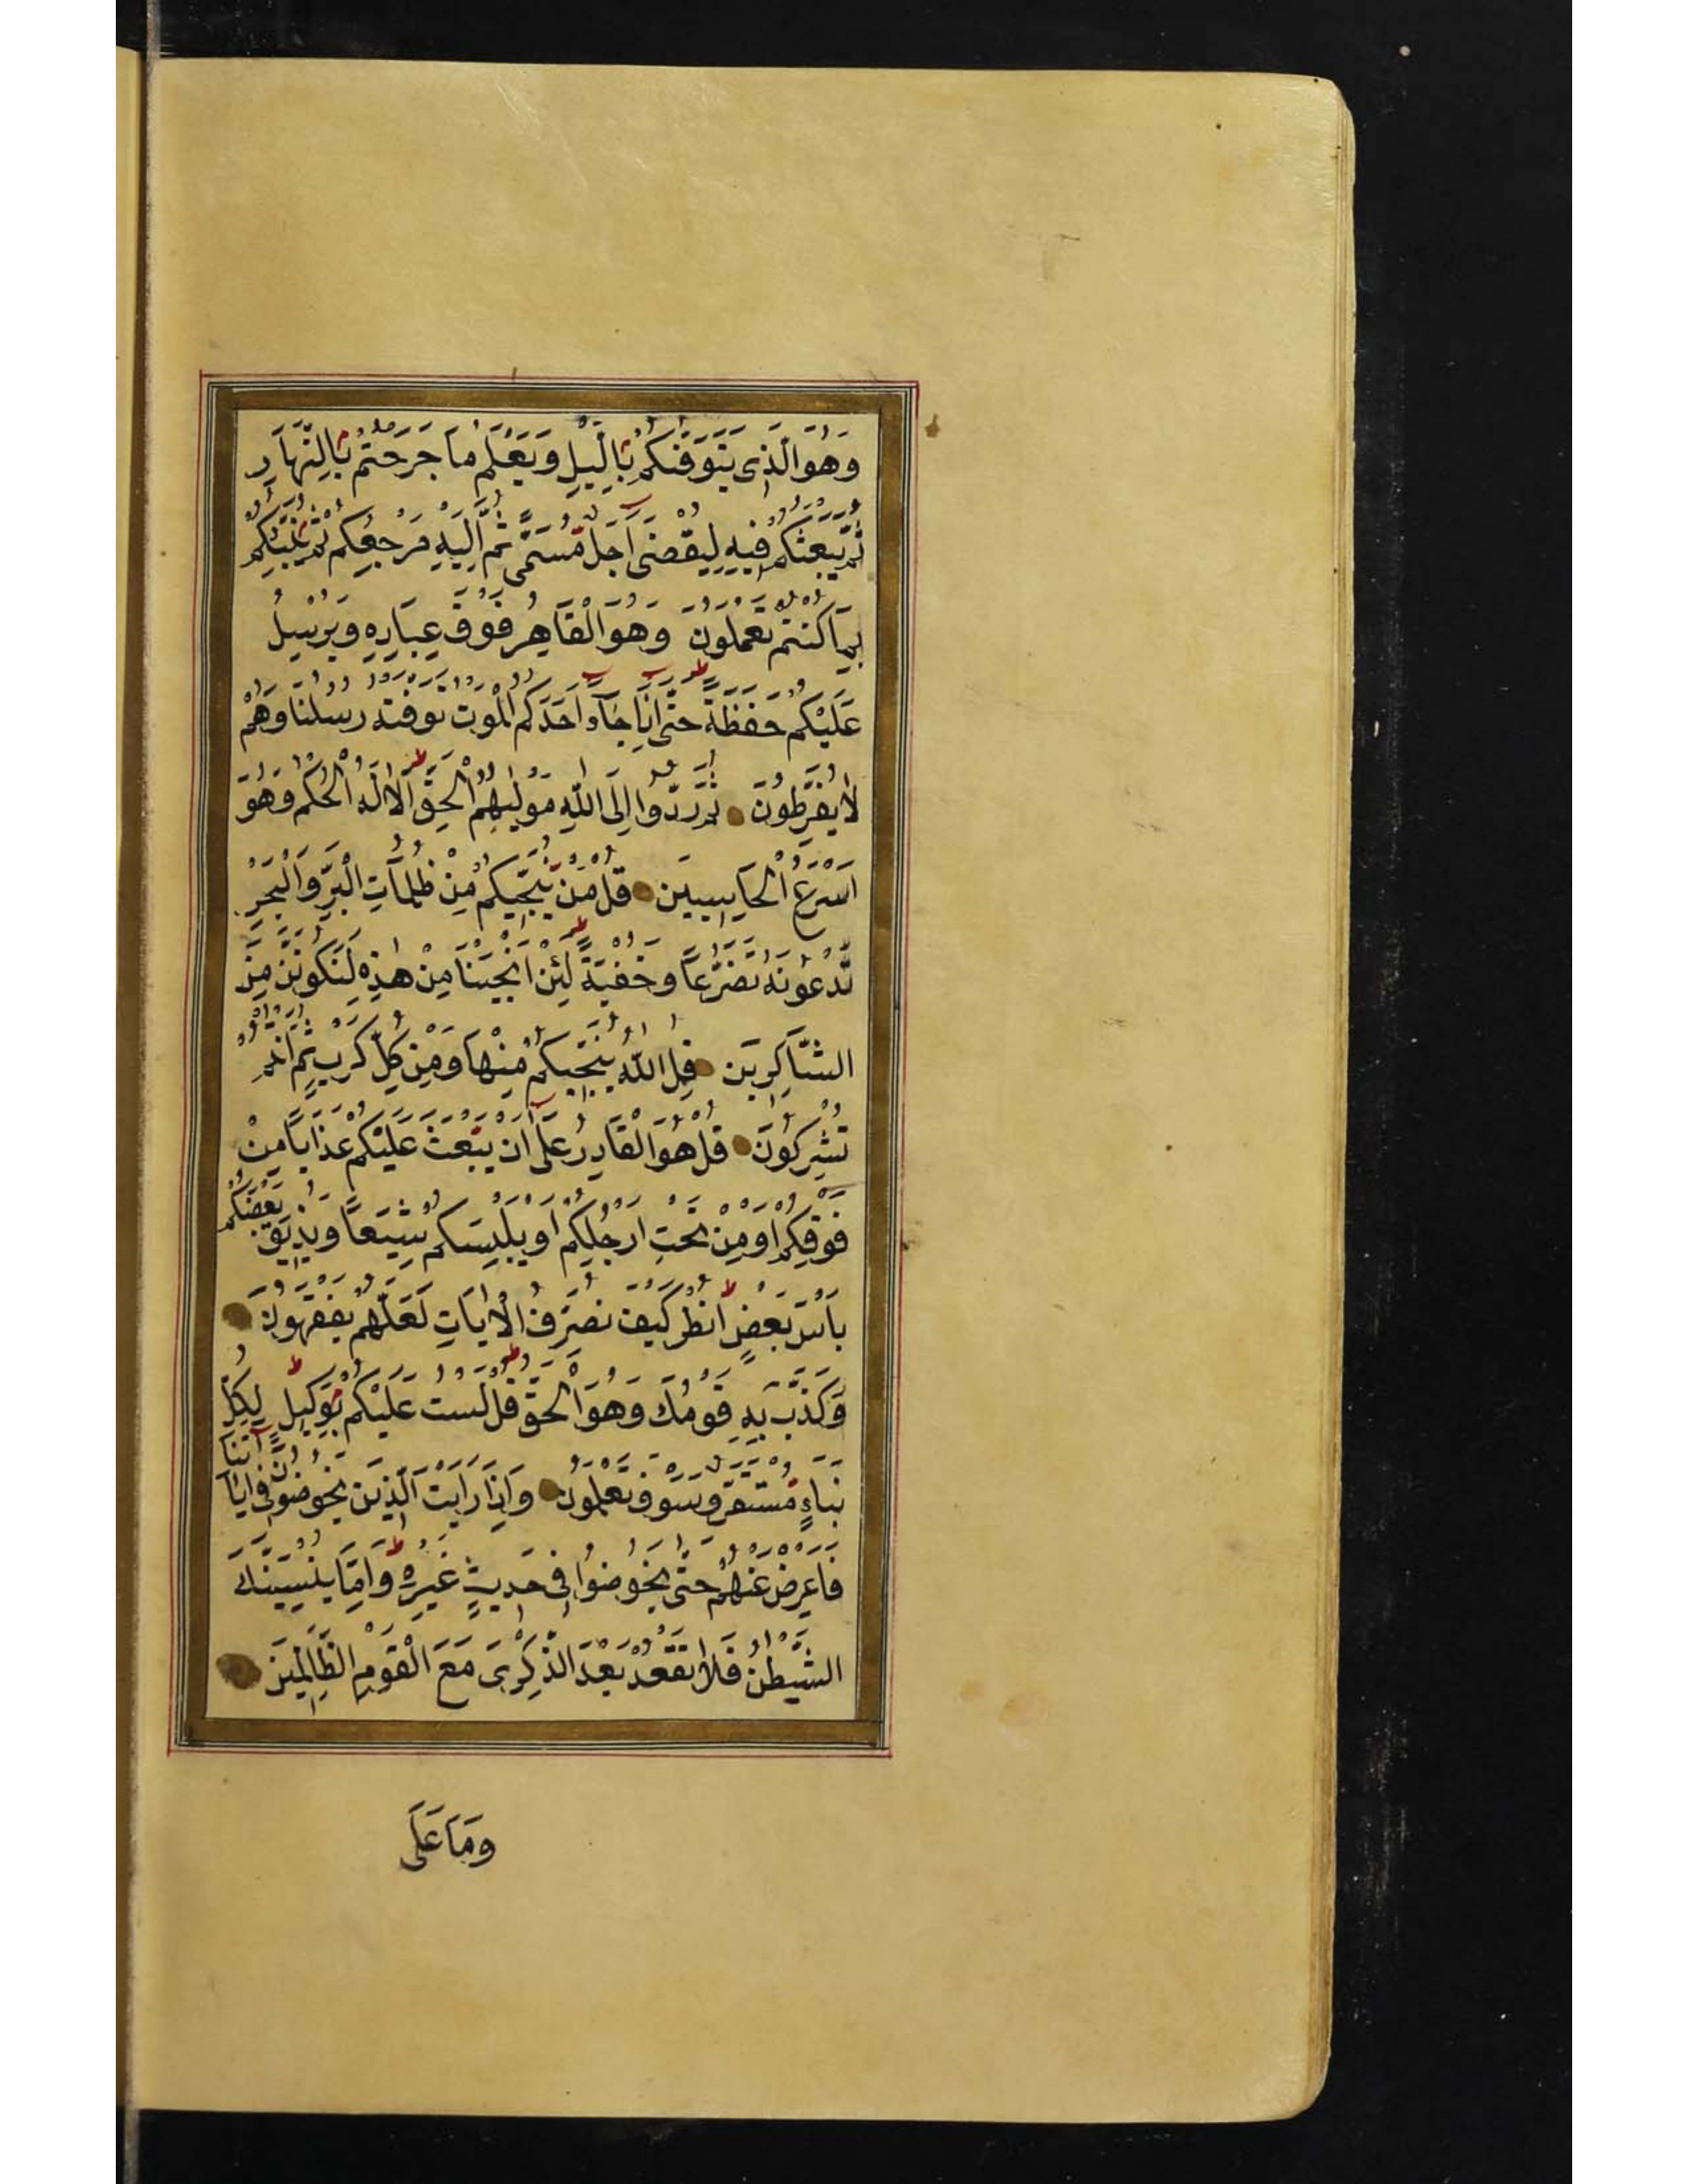 وَهُوَ الَّذِى يَتَوَفّٰكُمْ بِالَّيْلِ وَيَعْلَمُ مَا جَرَحْتُمْ بِالنَّهَارِ
ثُمَّ يَبْعَثُكُمْ فِيهِ لِيُقْضٰى اَجَلٌ مُسَمًّى ثُمَّ اِلَيْهِ مَرْجِعُكُمْ ثُمَّ يُنَبِّئُكُمْ
بِمَا كُنْتُمْ تَعْمَلُونَ وَهُوَ الْقَاهِرُ فَوْقَ عِبَادِهِ وَيُرْسِلُ
عَلَيْكُمْ حَفَظَةً حَتّٰى اِذَا جَآءَ اَحَدَكُمُ الْمَوْتُ تَوَفَّتْهُ رُسُلُنَا وَهُمْ
لَا يُفَرِّطُونَ ثُمَّ رُدُّوا اِلَى اللّٰهِ مَوْلٰيهُمُ الْحَقِّ اَلَا لَهُ الْحُكْمُ وَهُوَ
اَسْرَعُ الْحَاسِبِينَ قُلْ مَنْ يُنَجِّيكُمْ مِنْ ظُلُمَاتِ الْبَرِّ وَالْبَحْرِ
تَدْعُونَهُ تَضَرُّعًا وَخُفْيَةً لَئِنْ اَنْجَيْتَنَا مِنْ هٰذِهِ لَنَكُونَنَّ مِنَ
الشَّاكِرِينَ قُلِ اللّٰهُ يُنَجِّيكُمْ مِنْهَا وَمِنْ كُلِّ كَرْبٍ ثُمَّ اَنْتُمْ
تُشْرِكُونَ قُلْ هُوَ الْقَادِرُ عَلٰٓى اَنْ يَبْعَثَ عَلَيْكُمْ عَذَابًا مِنْ
فَوْقِكُمْ اَوْ مِنْ تَحْتِ اَرْجُلِكُمْ اَوْ يَلْبِسَكُمْ شِيَعًا وَيُذِيقَ بَعْضَكُمْ
بَاْسَ بَعْضٍ اُنْظُرْ كَيْفَ نُصَرِّفُ الْاٰيَاتِ لَعَلَّهُمْ يَفْقَهُونَ
وَكَذَّبَ بِهِ قَوْمُكَ وَهُوَ الْحَقُّ قُلْ لَسْتُ عَلَيْكُمْ بِوَكِيلٍ لِكُلِّ
نَبَاءٍ مُسْتَقَرٌّ وَسَوْفَ تَعْلَمُونَ وَاِذَا رَاَيْتَ الَّذِينَ يَخُوضُونَ فِى اٰيَاتِنَا
فَاَعْرِضْ عَنْهُمْ حَتّٰى يَخُوضُوا فِى حَدِيثٍ غَيْرِهِ وَاِمَّا يُنْسِيَنَّكَ
الشَّيْطٰنُ فَلَا تَقْعُدْ بَعْدَ الذِّكْرٰى مَعَ الْقَوْمِ الظَّالِمِينَ
وَمَا عَلَى